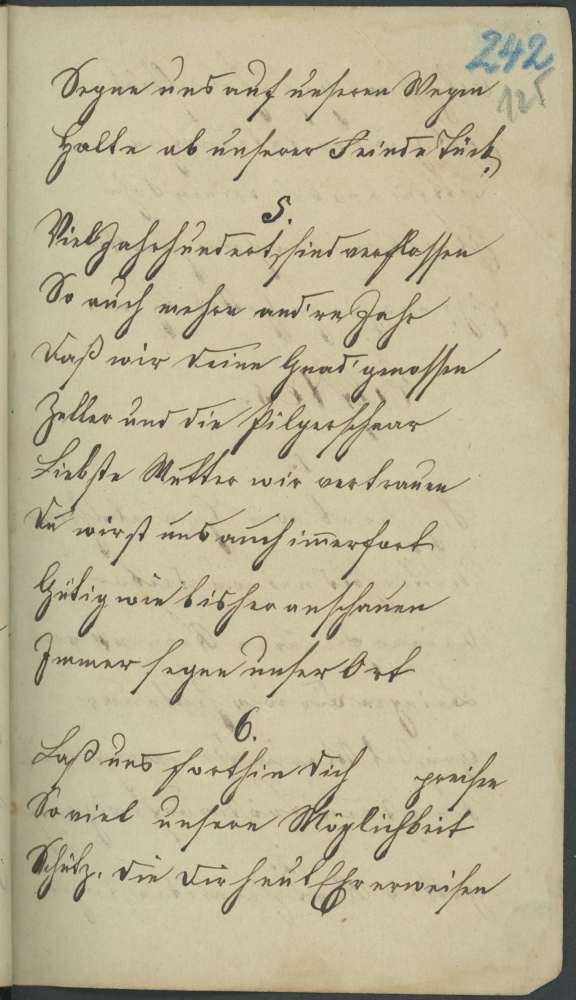 242
125
Segne uns auf unseren Wegen
Halte ab unserer Feinde Tück,
5.
Viel Jahrhundert, sind verflossen
So auch mehre and're Jahr
Daß wir deine Gnad' genossen
Zeller und die Pilgerschaar
Liebste Mutter wir vertrauen
Du wirst uns auch im̄erfort
Gütig wie bisher anschauen
Immer segne unser Ort
6.
Laß uns forthin dich preisen
So viel unsere Möglichkeit
Schütz. die dir heut Ehr erweisen